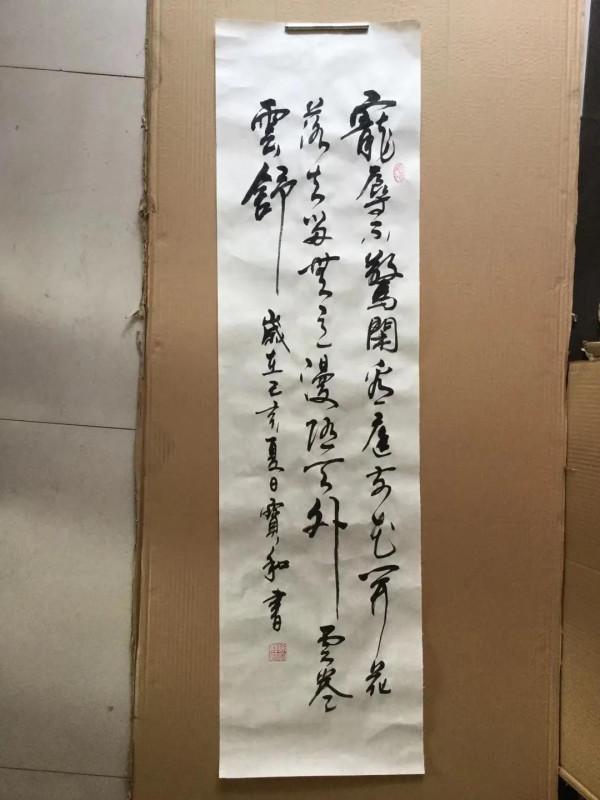 寵辱不驚閑看庭前花開花
落去留無意漫隨天外雲卷
雲舒
歲在己亥夏日寶和書